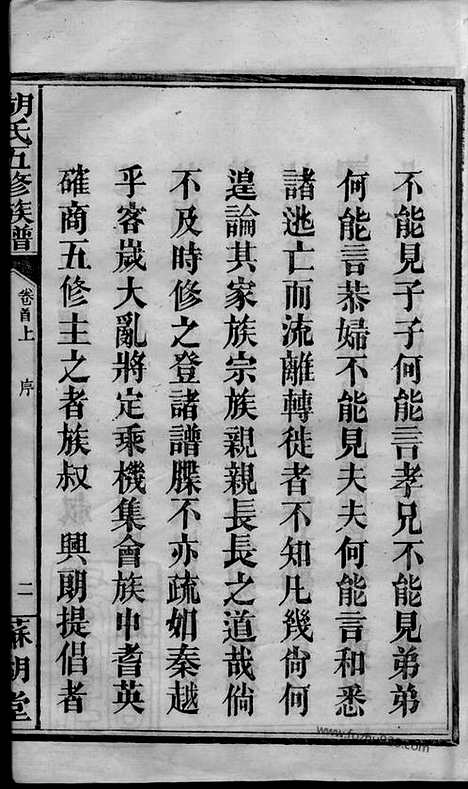 不能見子子何能言孝兄不能見弟弟
何能言恭婦不能見夫夫何能言和悉
諸逃亡而流離轉徙者不知凡幾尙何
遑論其家族宗族親親長長之道哉倘
不及時修之登諸譜牒不亦疏如秦越
乎客歲大亂將定乘機集會族中耆英
確商五修主之者族叔 興朗提倡者
胡氏五修族譜
卷首上 序
二
蘇湖堂